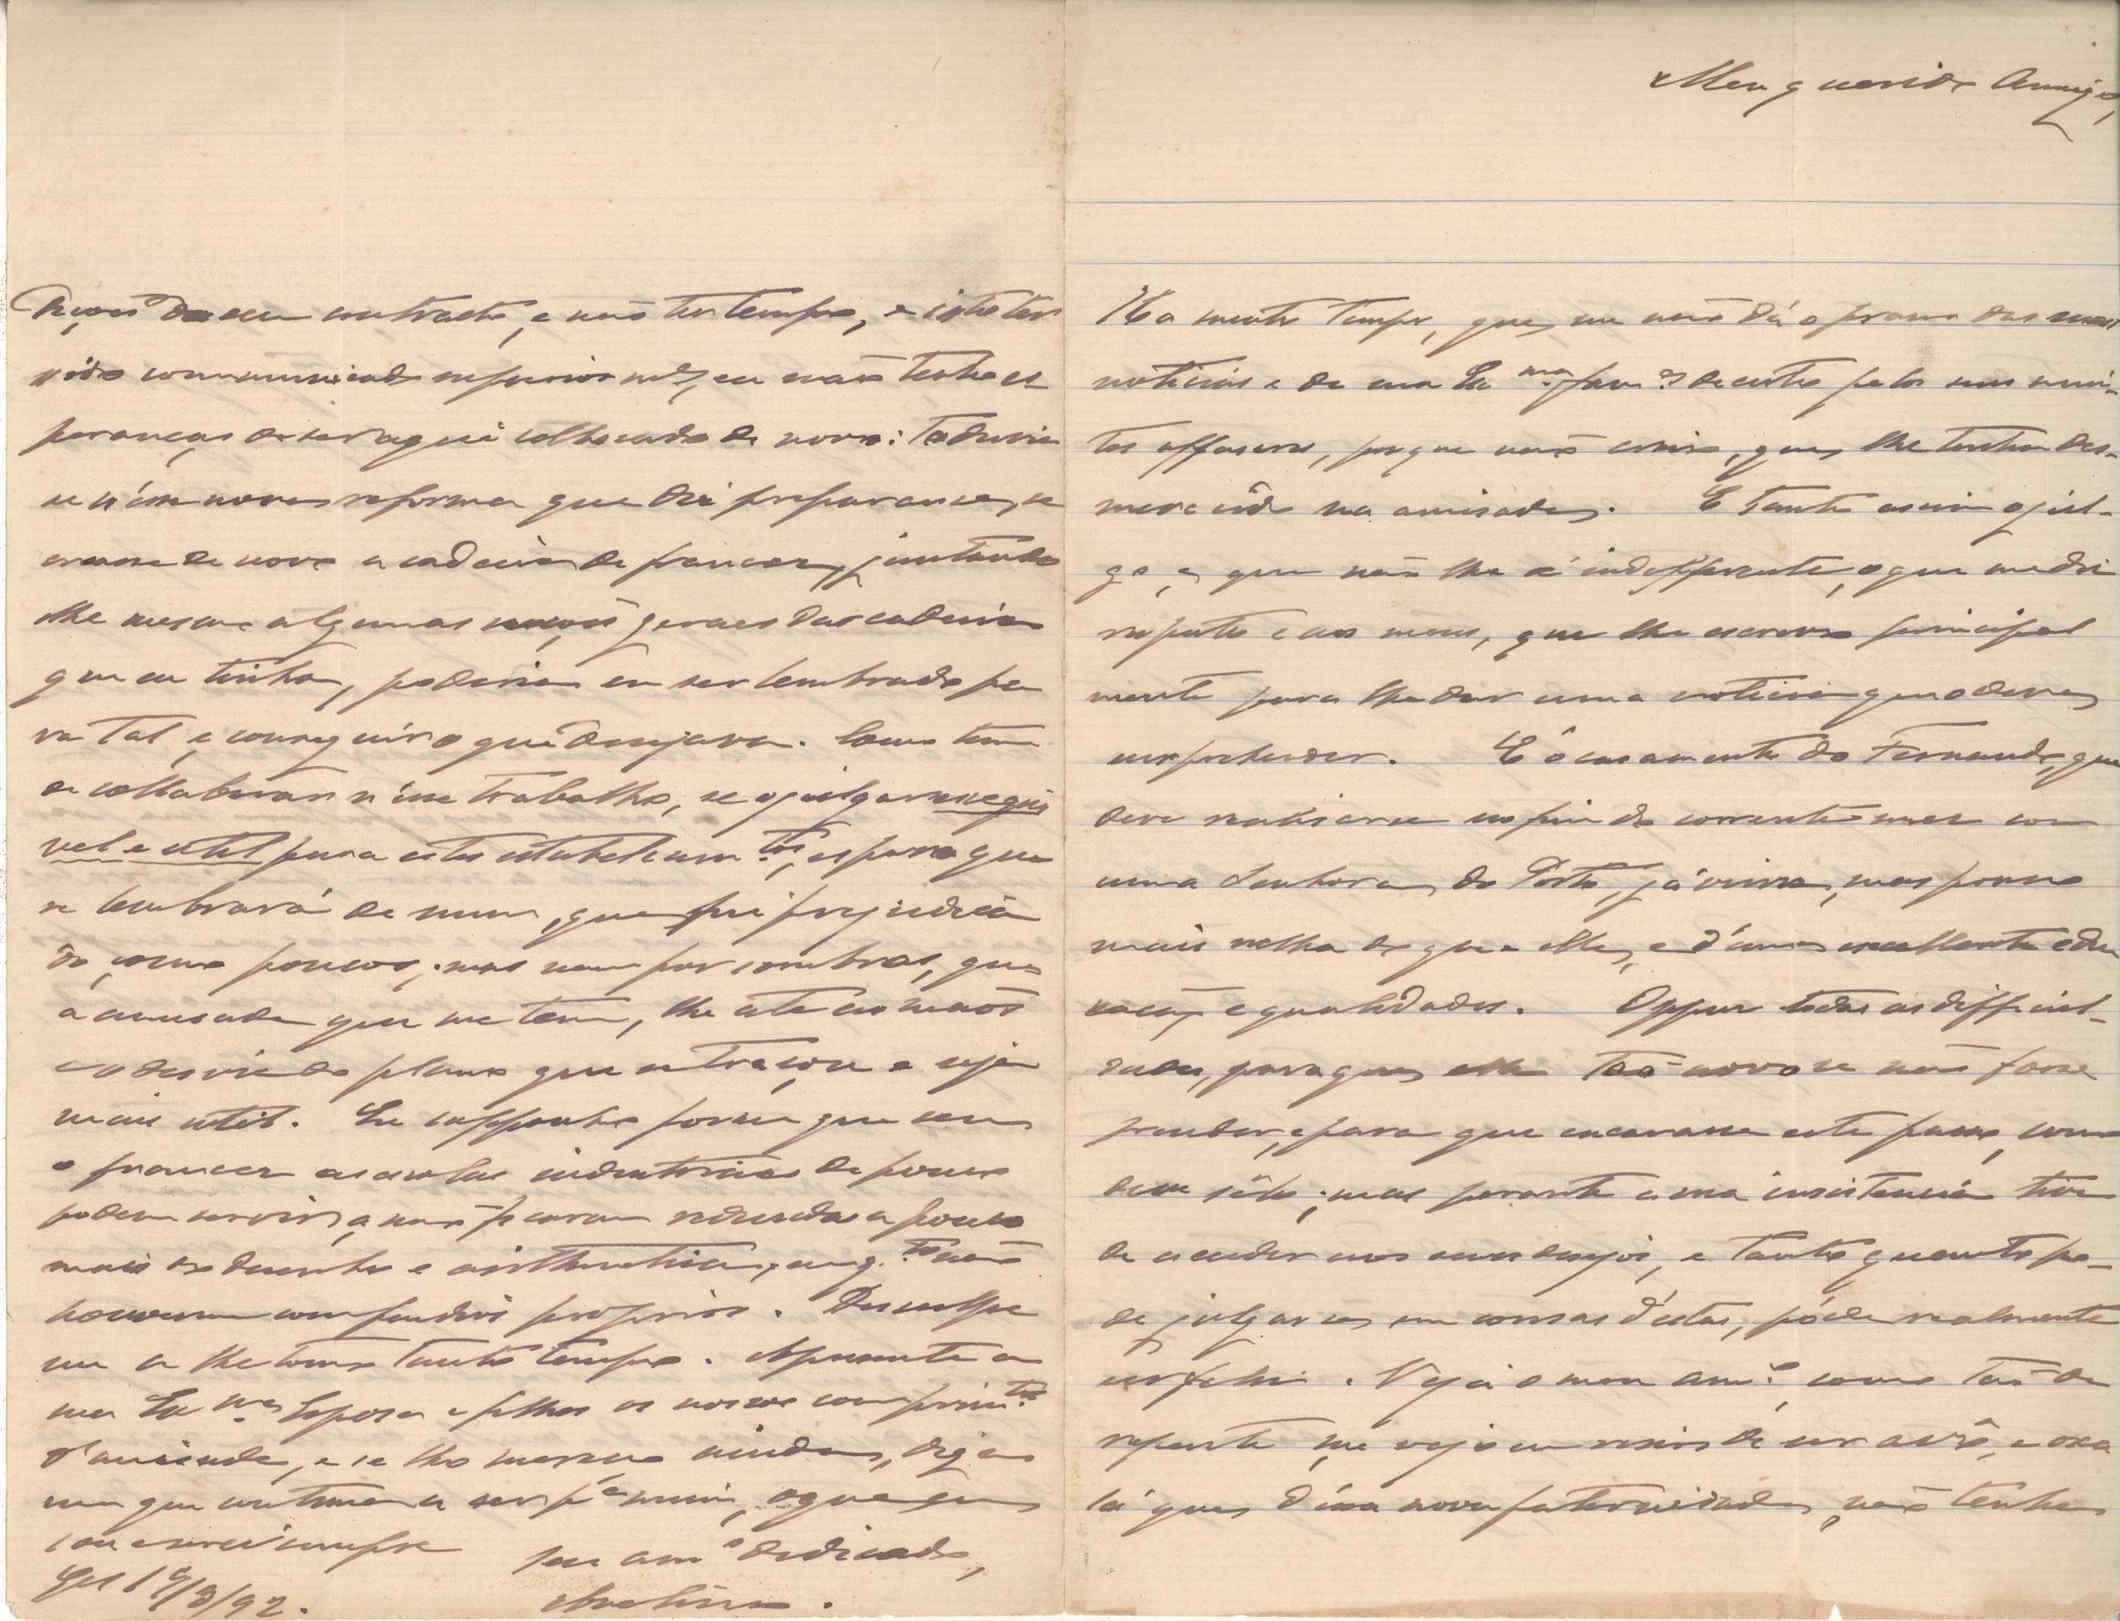 Meu querido Amigo,
Ha muito tempo, que me não dá o prazer das suas
noticias e de sua Ex.ma fam.a decerto pelos seus mui-
tos affazeres, porque não creio, que lhe tenha des-
merecido na amisade. E tanto assim o jul-
go, e que não lhe é indifferente, o que me diz
respeito e aos meus, que lhe escrevo principal
mente para lhe dar uma noticia que o deve
surprehender. É o casamento do Fernando, que
deve realisar-se no fim do corrente mez com
uma Senhora do Porto, já viuva, mas pouco
mais velha do que elle, e d'uma excellente edu
cação e qualidades. Oppuz todas as difficul-
dades, para que elle tão novo se não fosse
prender, e para que encarasse este passo, como
deve sêl-o; mas perante a sua insistencia tive
de aceder aos seus desejos, e tanto quanto po-
de julgar-se em cousas d'estas, póde realmente
ser feliz. Veja o meu am.o como tão de
repente me vejo em riscos de ser avô, e oxa
lá que d'essa nova paternidade não tenha
do seu contracto, e não ter tempo, e isto ter
sido communicado superiormte, eu não tenho es
peranças de ser aqui collocado de novo: todavia
se n'essa nova reforma que diz preparar-se, se
creasse de novo a cadeira de francez, juntando
lhe mesmo algumas noções geraes das cadeiras
que eu tinha, poderia eu ser lembrado pa
ra tal, e conseguir o que desejava. Como tem
de collaborar n'esse trabalho, se o julgar exequi
vel e util para estes estabelecim.tos, espero que
se lembrará de mim, que fui prejudica
do, como poucos; mas nem por sombras, que
a amisade que me tem, lhe ate as mãos
e o desvie do plano que se traçou e seja
mais util. Eu supponho porem que sem
o francez as escolas industriaes de pouco
podem servir, e não ficaram reduzidas a pouco
mais do desenho e arithmetica, emq.to não
houverem compendios proprios. Desculpe
me de lhe tomar tanto tempo. Apresente a
sua Ex.ma Esposa e filhos os nossos comprim.tos
d'amisade, e se lho mereço ainda, diga
me que continua a ser p.a mim, o que eu
sou e serei sempre seu am.o dedicado,
/8/92.